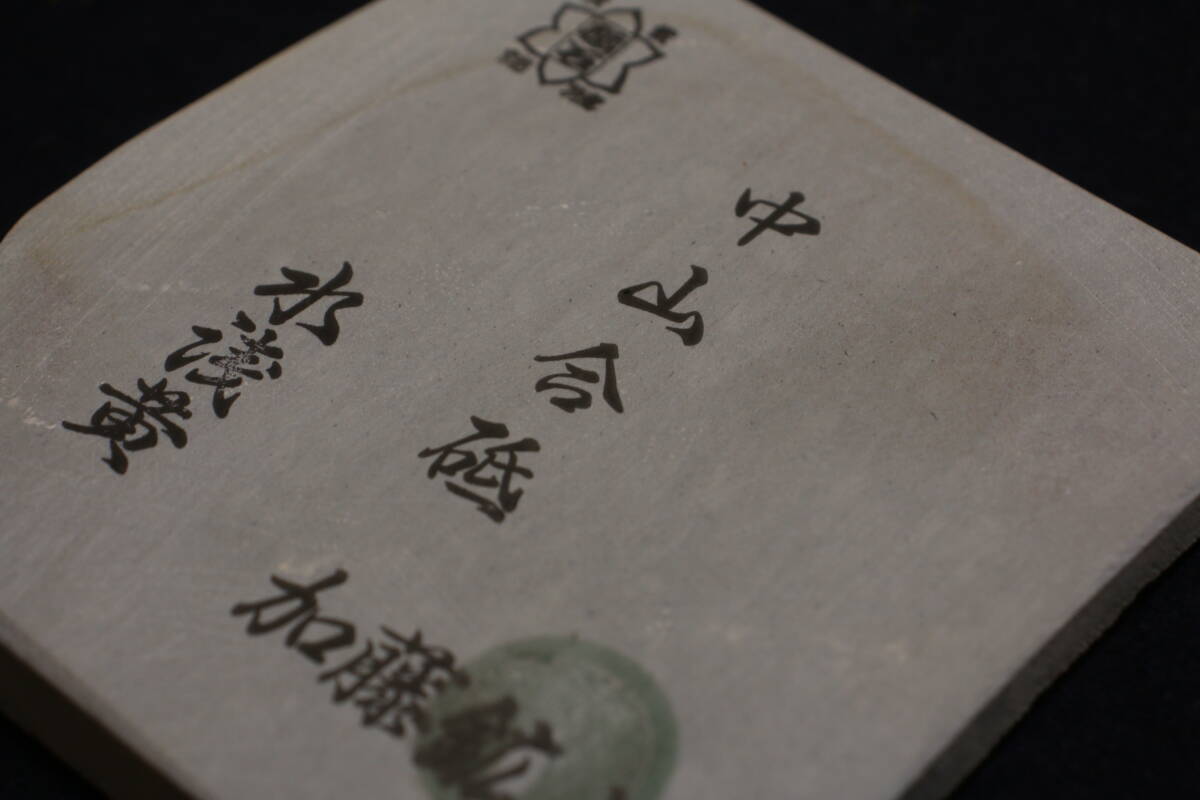 中山合砥
水浅黄
加藤鉱